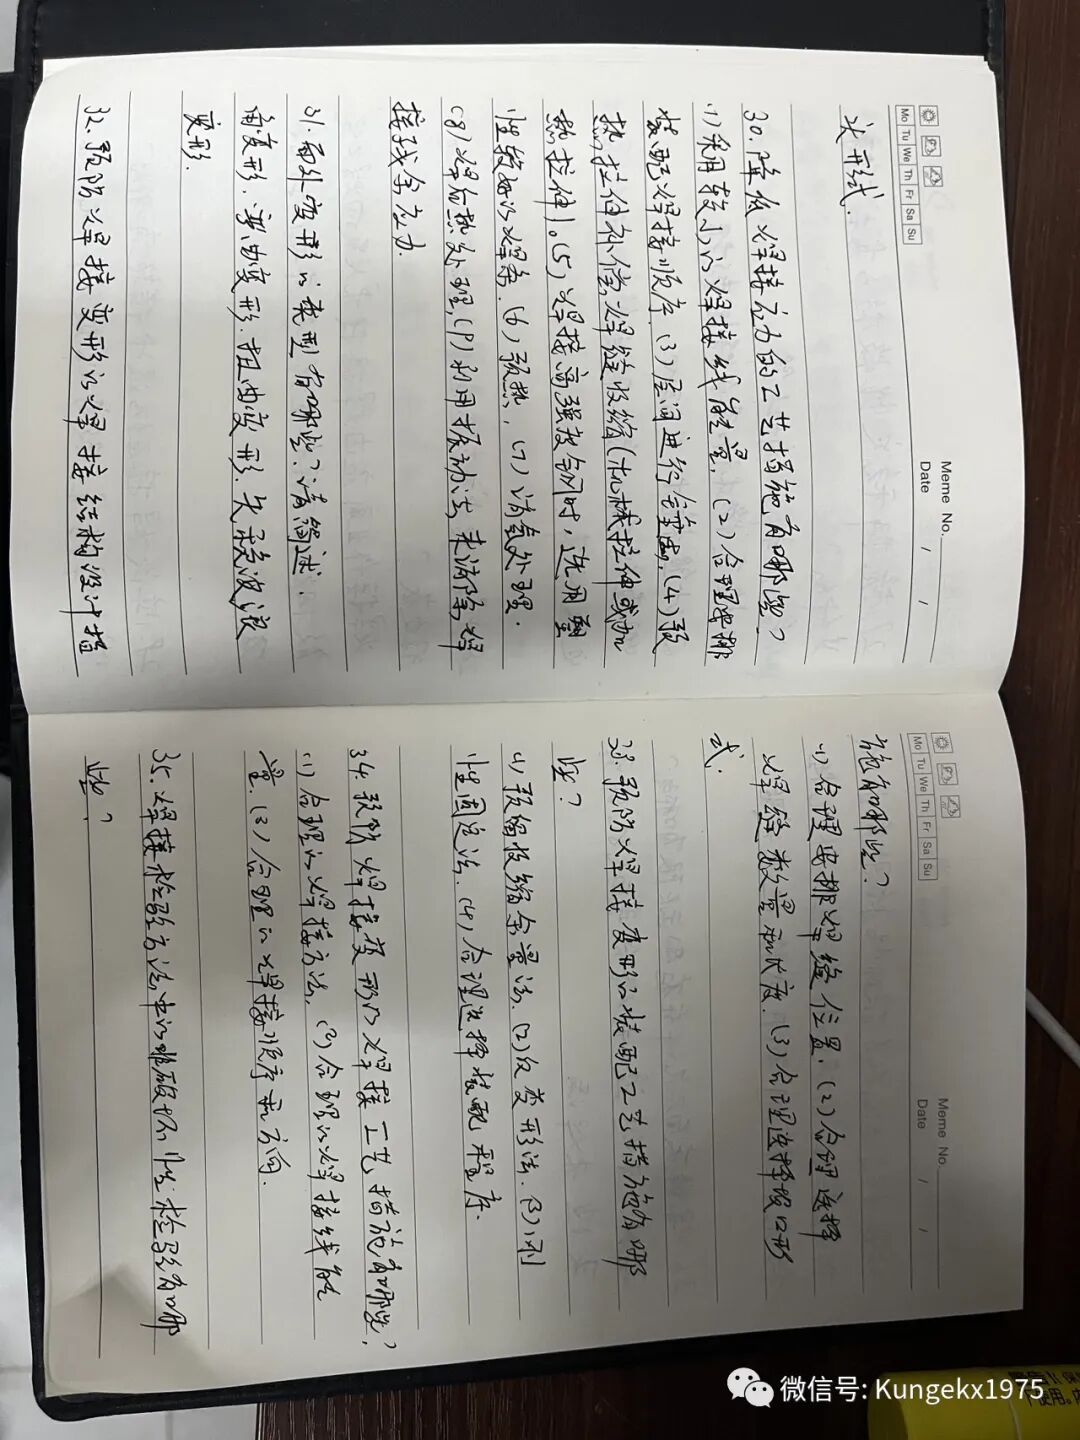 Meme No.
Mo Tu We Th Fr Sa Su
Date / /
头形式.
30.降低焊接应力的工艺措施有哪些?
(1)采用较小的焊接线能量.(2)合理安排
装配焊接顺序.(3)层间进行锤击.(4)预
热拉伸补偿焊缝收缩(机械拉伸或加
热拉伸)。(5)焊接高强度钢时,选用塑
性较好的焊条.(6)预热.(7)消氢处理.
(8)焊后热处理.(9)利用振动法来消除焊
接残余应力.
31.面外变形的类型有哪些?请简述.
角变形.弯曲变形.扭曲变形.失稳波浪
变形.
32.预防焊接变形的焊接结构设计措
Meme No.
Mo Tu We Th Fr Sa Su
Date / /
施有哪些?
(1)合理安排焊缝位置.(2)合理选择
焊缝数量和长度.(3)合理选择坡口形
式.
33.预防焊接变形的装配工艺措施有哪
些?
(1)预留收缩余量法.(2)反变形法.(3)刚
性固定法.(4)合理选择装配程序.
34.预防焊接变形的焊接工艺措施有哪些?
(1)合理的焊接方法.(2)合理的焊接线能
量.(3)合理的焊接顺序和方向.
35.焊接检验方法中的非破坏性检验有哪
些?
微信号: Kungekx1975